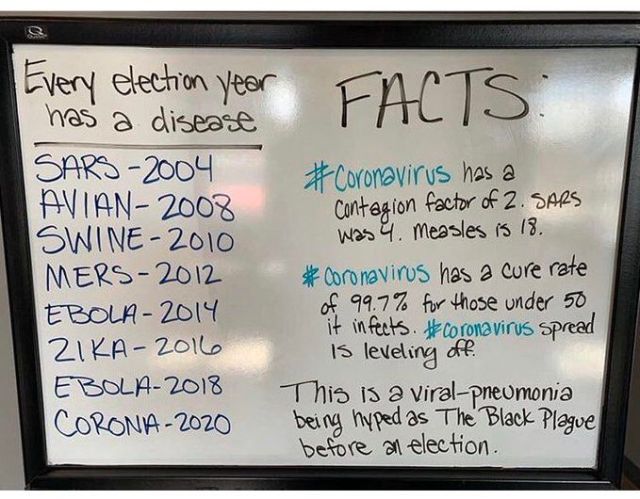 Every election year
has a disease
SARS - 2004
AVIAN - 2008
SWINE - 2010
MERS - 2012
EBOLA - 2014
ZIKA - 2016
EBOLA - 2018
CORONA - 2020
FACTS:
#Coronavirus has a
contagion factor of 2. SARS
was 4. Measles is 18.
#Coronavirus has a cure rate
of 99.7% for those under 50
it infects. #Coronavirus spread
is leveling off.
This is a viral-pneumonia
being hyped as The Black Plague
before an election.